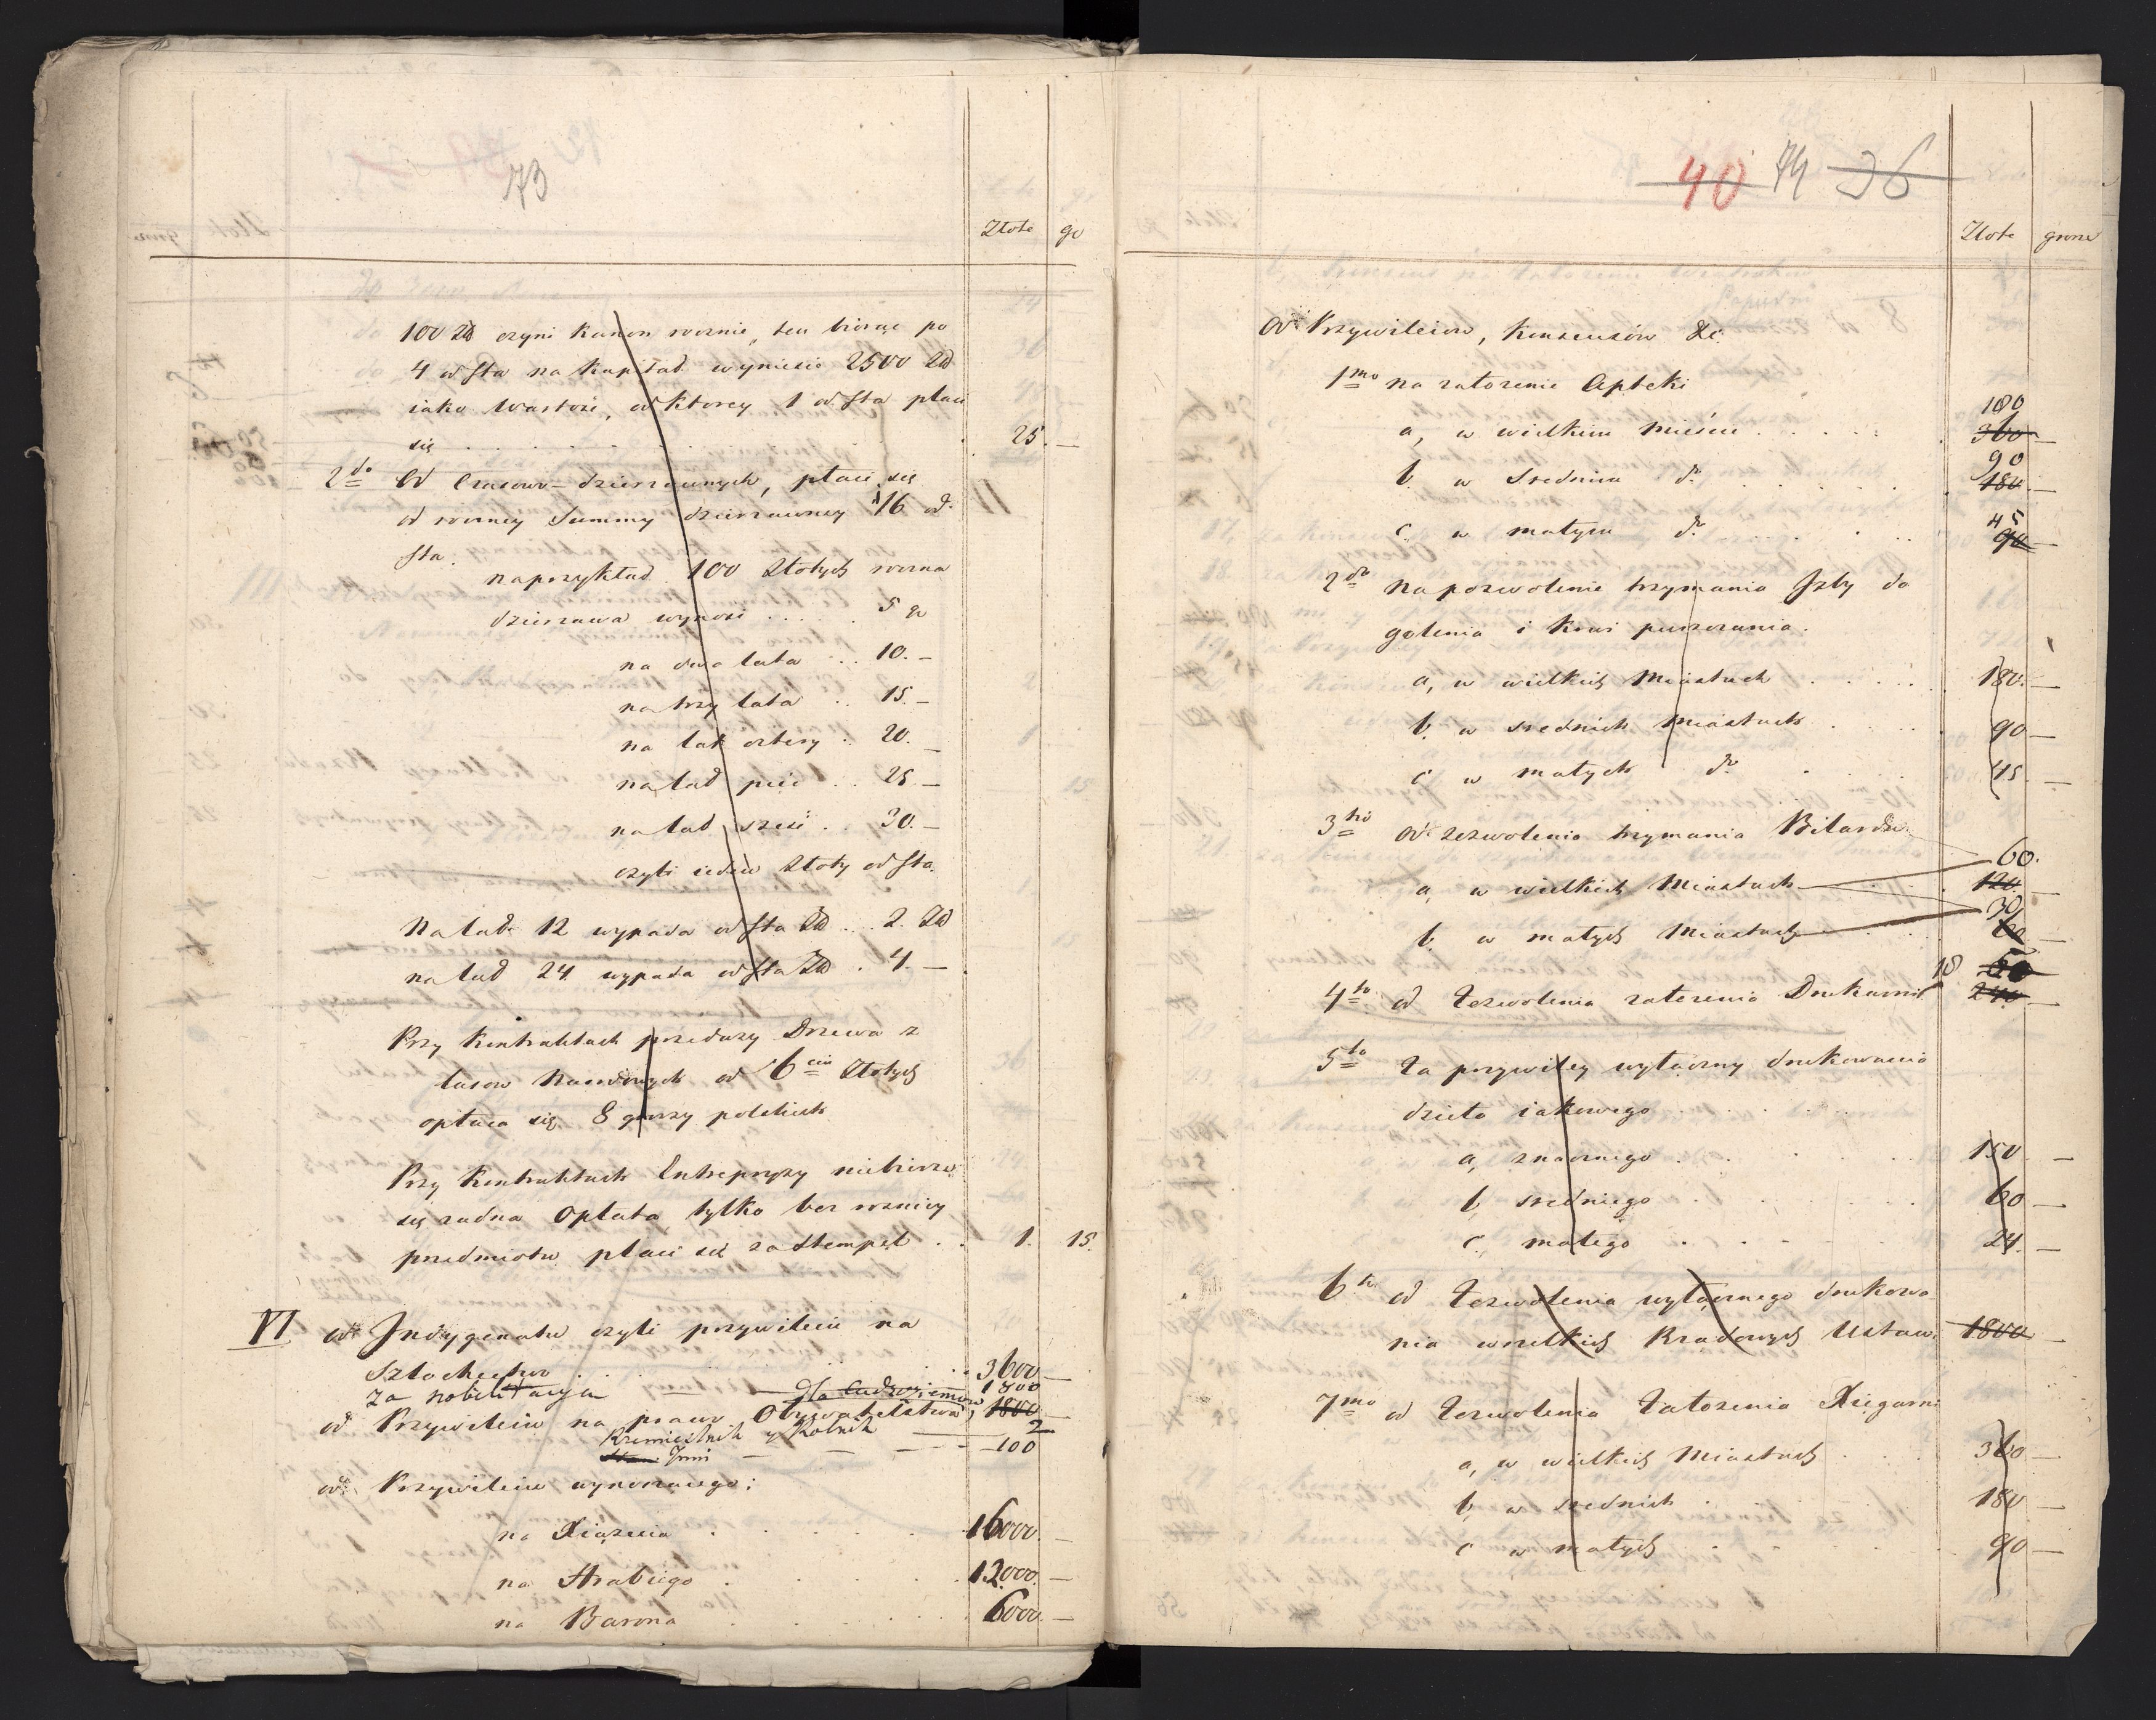 73
Złote gr
100 Zł czyni Kanon rocznie, ten biorąc po
4 od Sta na Kapitał wyniesie 2500 Zł
iako Wartość, od ktorey 1 od Sta płaci
się . . . . . 25. —
2do Od Czasowo-dzierzawnych, płaci się
od roczney Summy dzierzawney 1/6 od
Sta.
naprzykład 100 Złotych roczna
dzierzawa wynosi . . . . 5 gr
na dwa lata . . 10. —
na trzy lata . . 15. —
na lat cztery . 20. —
na lat pięć . . 25. —
na lat sześć . . 30. —
czyli ieden Złoty od Sta.
Na lat 12 wypada od Sta Zł . . 2. Zł
na lat 24 wypada od Sta Zł . 4. —
Przy Kontraktach przedaży Drzewa z
lasow Narodowych od 6ciu Złotych
opłaca się 8 groszy polskich
Przy Kontraktach Entrepryzy niebierze
się zadna Opłata, tylko bez roznicy
przedmiotu płaci się za Stempel . . 1. 15.
VI od Indygenatu czyli przywileiu na
Szlachectwo . . . . . 3600 —
za nobilitacyą — dla Cudzoziemców 1800
od Przywileiu na prawo Obywatelstwa, 1800 —
Rzemieślnik y Rolnik — 2
Inni — — — — 100
od Przywileiu wynoszącego:
na Xiązęcia . . . . . 16000. —
na Hrabiego . . . . . 12000. —
na Barona . . . . . 6000. —
40 74 36
Złote grosze
Od Przywileiow, Konsensów &c.
1mo na załozenie Apteki
180
a, w wielkim Mieście . . . . . 360 —
90
b. w Srednim do . . . . . 180. —
45
c. w małym do . . . . . 90 —
2do Na pozwolenie trzymania Izby do
golenia i Krwi puszczania.
a, w wielkich Miastach . . . . 180. —
b. w srednich Miastach . . . . 90 —
c w małych do . . . . 45. —
3tio Od zezwolenia trzymania Bilardu
60.
a, w wielkich Miastach . . 120. —
30
b. w małych Miastach . . 60 —
18 50
4to od Zezwolenia załozenia Drukarni 240 —
5to Za przywiley wyłączny drukowania
dzieła iakowego . . . . .
a, znacznego . . . . . 150 —
b, sredniego . . . . . 60 —
c. małego . . . . . 24. —
6to od Zezwolenia wyłącznego drukowa
nia wszelkich Rządowych Ustaw. 1800 —
7mo od Zezwolenia Załozenia Xięgarni
a, w wielkich Miastach . . . 360 —
b, w srednich . . . . 180 —
c w małych . . . . . 90 —